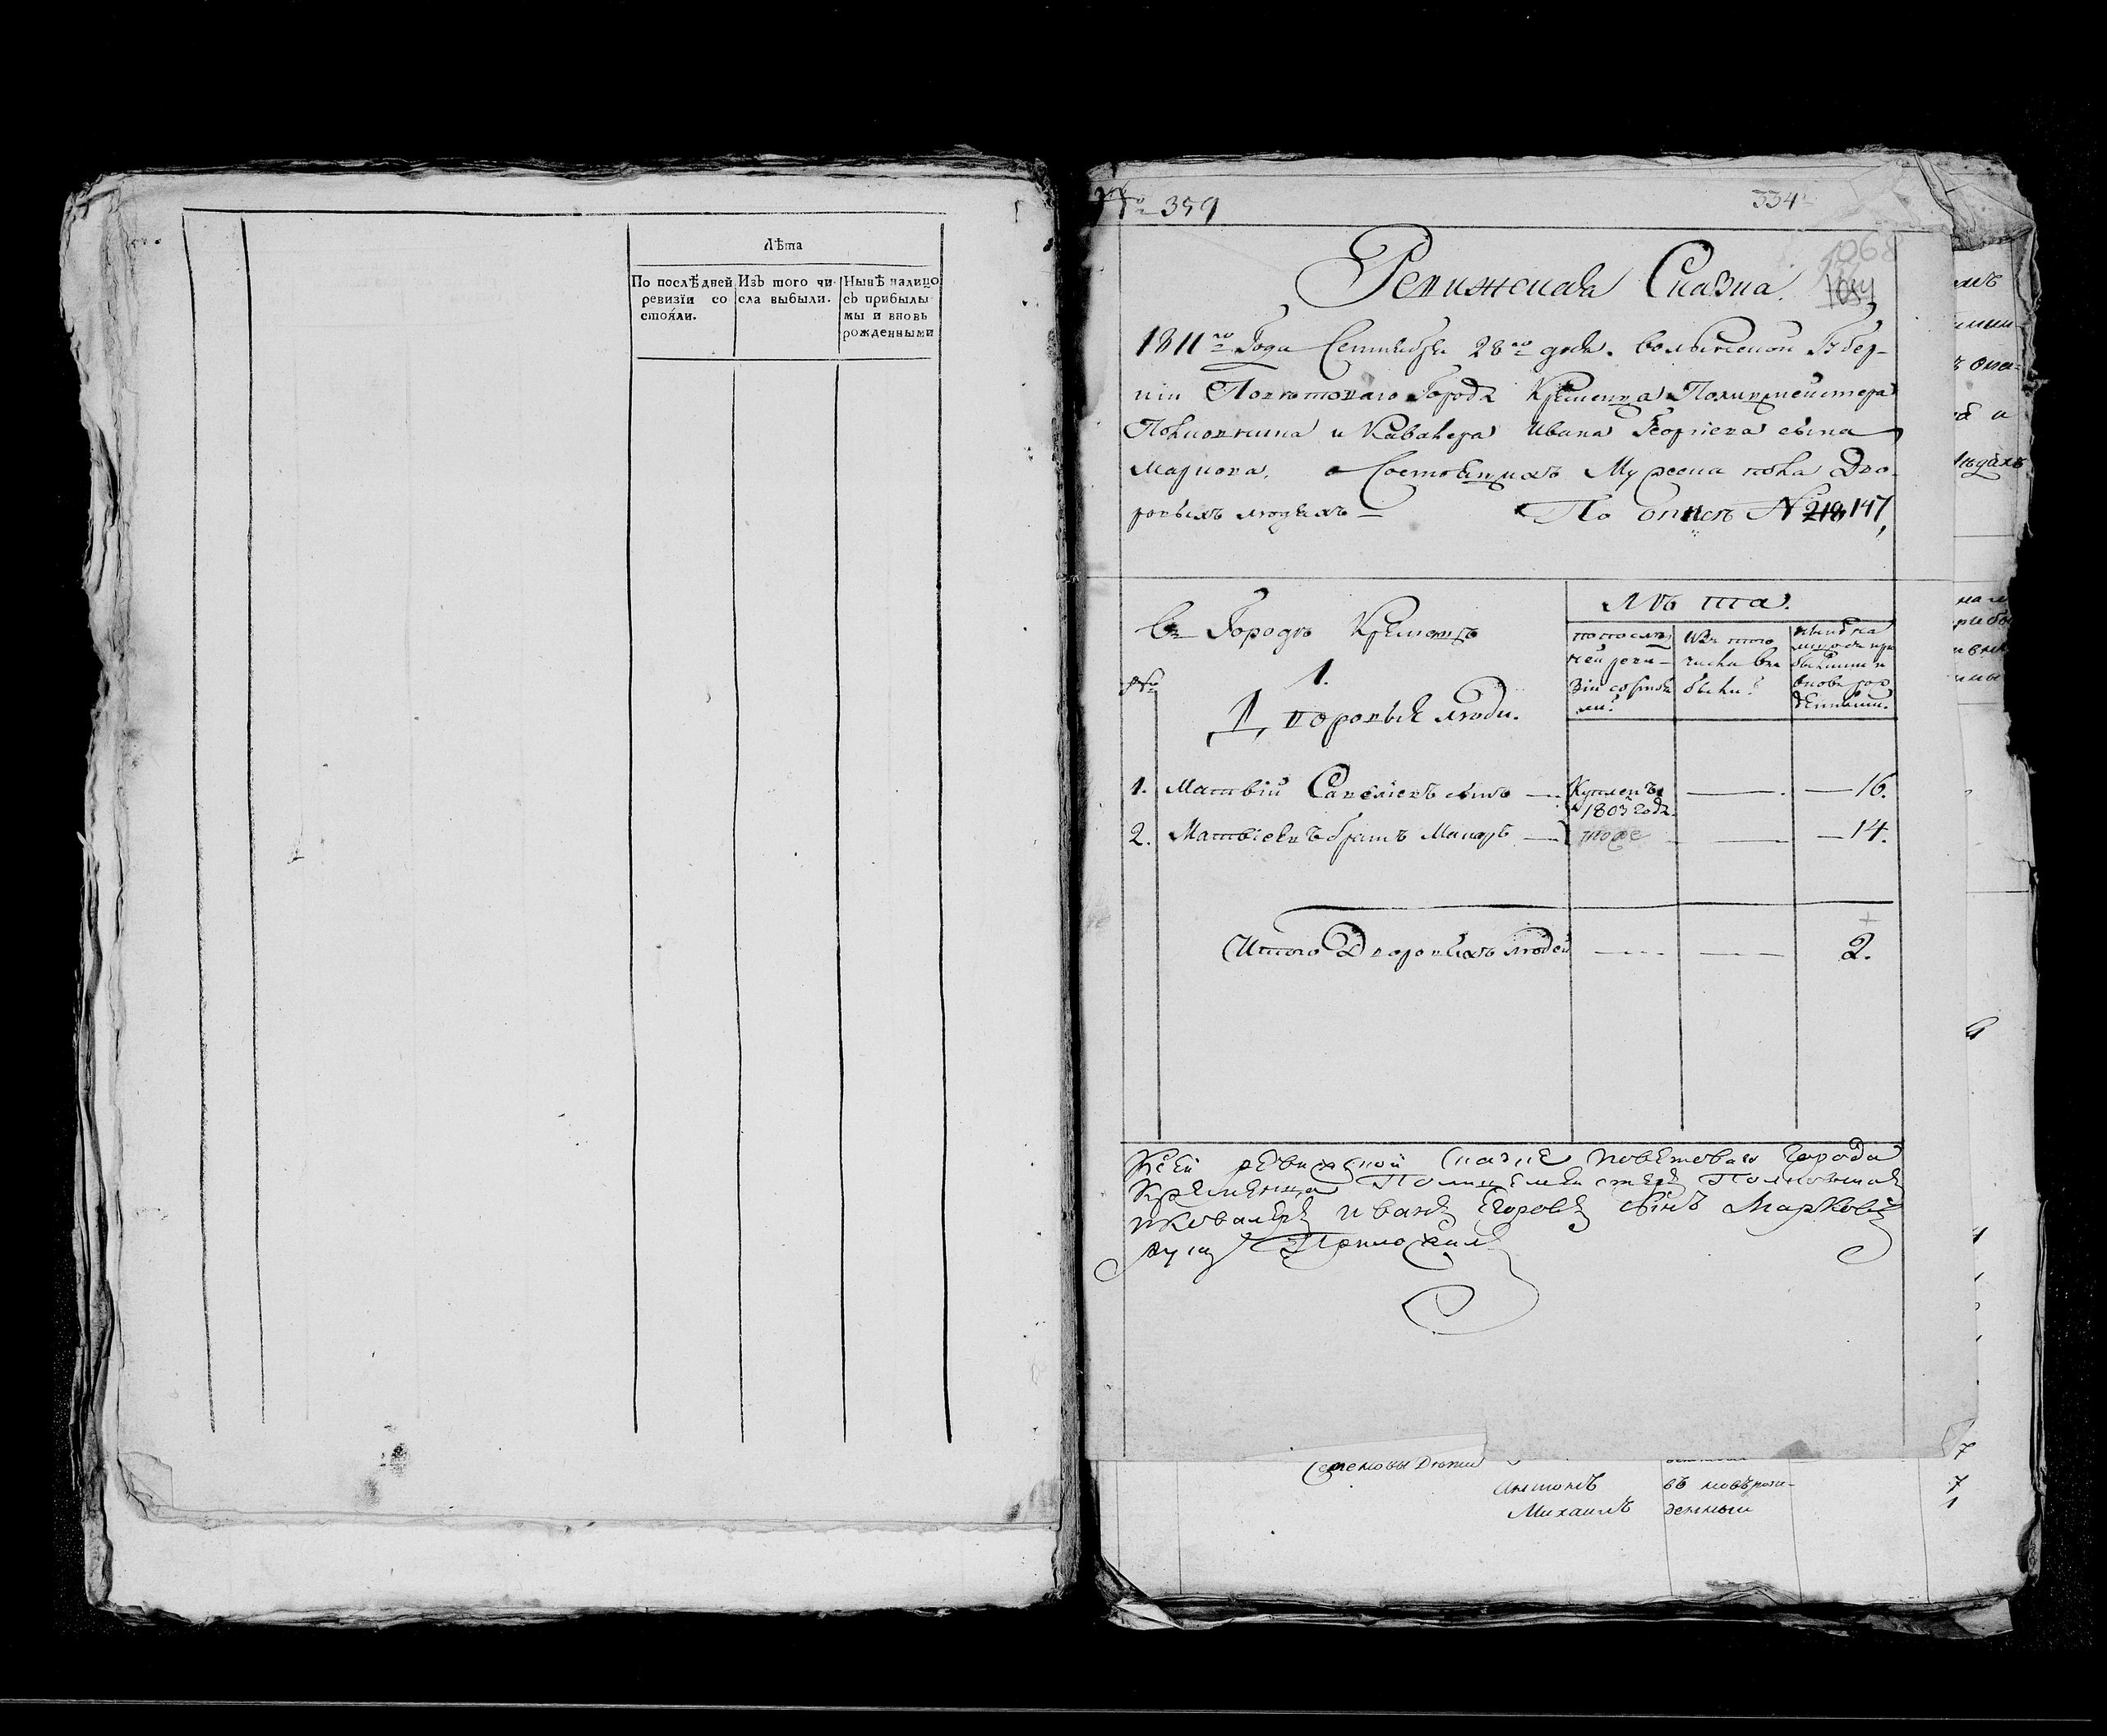 Лѣта
По послѣдней ревизіи со стояли.
Изъ того чи сла выбыли.
Нынѣ налицо съ прибылы ми и вновь рожденными
№ 359
334
1068
Ревижская Сказка.
1811го Года Сентября 28го дня. Волынской Губер-
ніи Повѣтоваго Города Кременца Полицмейстера
Полковника и Кавалера Ивана Георгіева сына
Маркова, о Состоящихъ Мужеска пола Дво-
ровыхъ людяхъ — По описи № 218 147,
Въ Городѣ Кременцѣ
Лѣта.
№
1.
Дворовые люди.
по послѣд ней реви- зіи состоя ли.
Изъ того числа вы были.
Нынѣ на лицо съ при былыми и вновь рож денными.
1. Матвѣй Савельевъ сынъ — Куплен въ 1803 годе. — — 16.
2. Матвѣевъ братъ Макаръ — тоже — — 14.
Итого Дворовыхъ людей — — 2.
К сей ревижской сказке поветоваго города
Кременца Полицемейстеръ Полковникъ
и Кавалеръ Иванъ Егоровъ сынъ Марковъ
руку Приложилъ
Семеновы Дѣти
Антонъ въ новърож- 7
Михаилъ денный 1